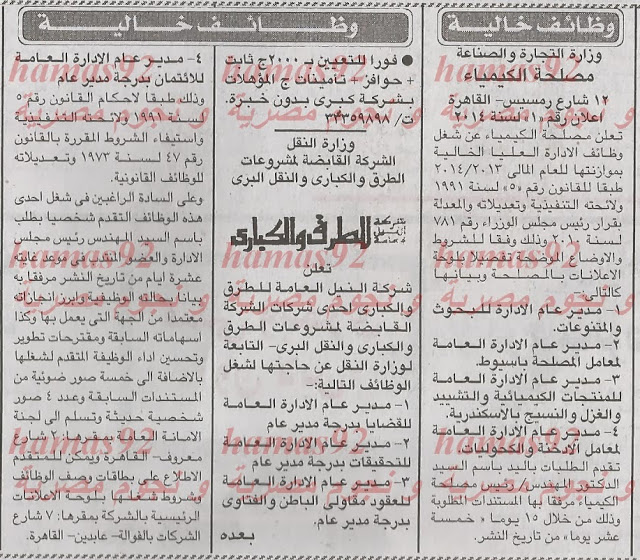 وظائف خالية
وزارة التجارة والصناعة
مصلحة الكيمياء
١٢ شارع رمسيس - القاهرة
اعلان رقم ١ لسنة ٢٠١٤
تعلن مصلحة الكيمياء عن شغل
وظائف الادارة العليا الخالية
بموازنتها للعام المالى ٢٠١٤/٢٠١٣
طبقا للقانون رقم «٥» لسنة ١٩٩١
ولائحته التنفيذية وتعديلاته والمعدلة
بقرار رئيس مجلس الوزراء رقم ٧٨١
لسنة وذلك وفقا للشروط
والاوضاع الموضحة تفصيلا بلوحة
الاعلانات بالمصلحة وبيانها
كالتالى:-
١- مدير عام الادارة العامة للبحوث
والمتنوعات.
٢- مدير عام الادارة العامة
لمعامل المصلحة باسيوط.
٣- مدير عام الادارة العامة
للمنتجات الكيميائية والتشييد
والغزل والنسيج بالاسكندرية.
٤- مدير عام الادارة العامة
لمعامل الادخنة والكحوليات.
تقدم الطلبات باليد باسم السيد
الدكتور المهندس/ رئيس مصلحة
الكيمياء مرفقا بها المستندات المطلوبة
وذلك من خلال ١٥ يوما «خمسة
عشر يوما» من تاريخ النشر.
وظائف خالية
● فورا للتعيين بـ ٢٠٠٠ج ثابت
+ حوافز + تأمينات ج المؤهلات
بشركة كبرى بدون خبرة.
ت/ ٣٤٣٥٩٨٩٨
وزارة النقل
الشركة القابضة لمشروعات
الطرق والكبارى والنقل البرى
شركة النيل العامة
الطرق والكبارى
تعلن
شركة النيل العامة للطرق
والكبارى احدى شركات الشركة
القابضة لمشروعات الطرق
والكبارى والنقل البرى - التابعة
لوزارة النقل عن حاجتها لشغل
الوظائف التالية:-
١- مدير عام الادارة العامة
للقضايا بدرجة مدير عام
٢- مدير عام الادارة العامة
للتحقيقات بدرجة مدير عام
٣- مدير عام الادارة العامة
للعقود مقاولى الباطن والفتاوى
بدرجة مدير عام.
بعده
٤- مدير عام الادارة العامة
للائتمان بدرجة مدير عام
وذلك طبقا لاحكام القانون رقم ٥
لسنة ١٩٩١ ولائحته التنفيذية
واستيفاء الشروط المقررة بالقانون
رقم ٤٧ لسنة ١٩٧٣ وتعديلاته
للوظائف القانونية.
وعلى السادة الراغبين فى شغل احدى
هذه الوظائف التقدم شخصيا بطلب
باسم السيد المهندس رئيس مجلس
الادارة والعضو المنتدب فى موعد غايته
عشرة ايام من تاريخ النشر مرفقا به
بيانا بحالته الوظيفية وابرز انجازاته
معتمدا من الجهة التى يعمل بها وكذا
اسهاماته السابقة ومقترحات تطوير
وتحسين اداء الوظيفة المتقدم لشغلها
بالاضافة الى خمسة صور ضوئية من
المستندات السابقة وعدد ٤ صور
شخصية حديثة وتسلم الى لجنة
الامانة العامة بمقرها: ٧ شارع
معروف - القاهرة ويمكن للمتقدم
الاطلاع على بطاقات وصف الوظائف
وشروط شغلها بلوحة الاعلانات
الرئيسية بالشركة بمقرها: ٧ شارع
الشركات بالفوالة - عابدين - القاهرة.
hamas92
و نجوم مصرية